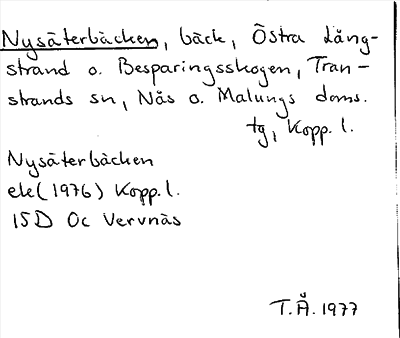 Nysäterbäcken, bäck, Östra Lång-
strand o. Besparingsskogen, Tran-
strands sn, Nås o. Malungs doms.
tg, Kopp. l.
Nysäterbäcken
ek (1976) Kopp. l.
15D Oc Vervnäs
T.Å. 1977